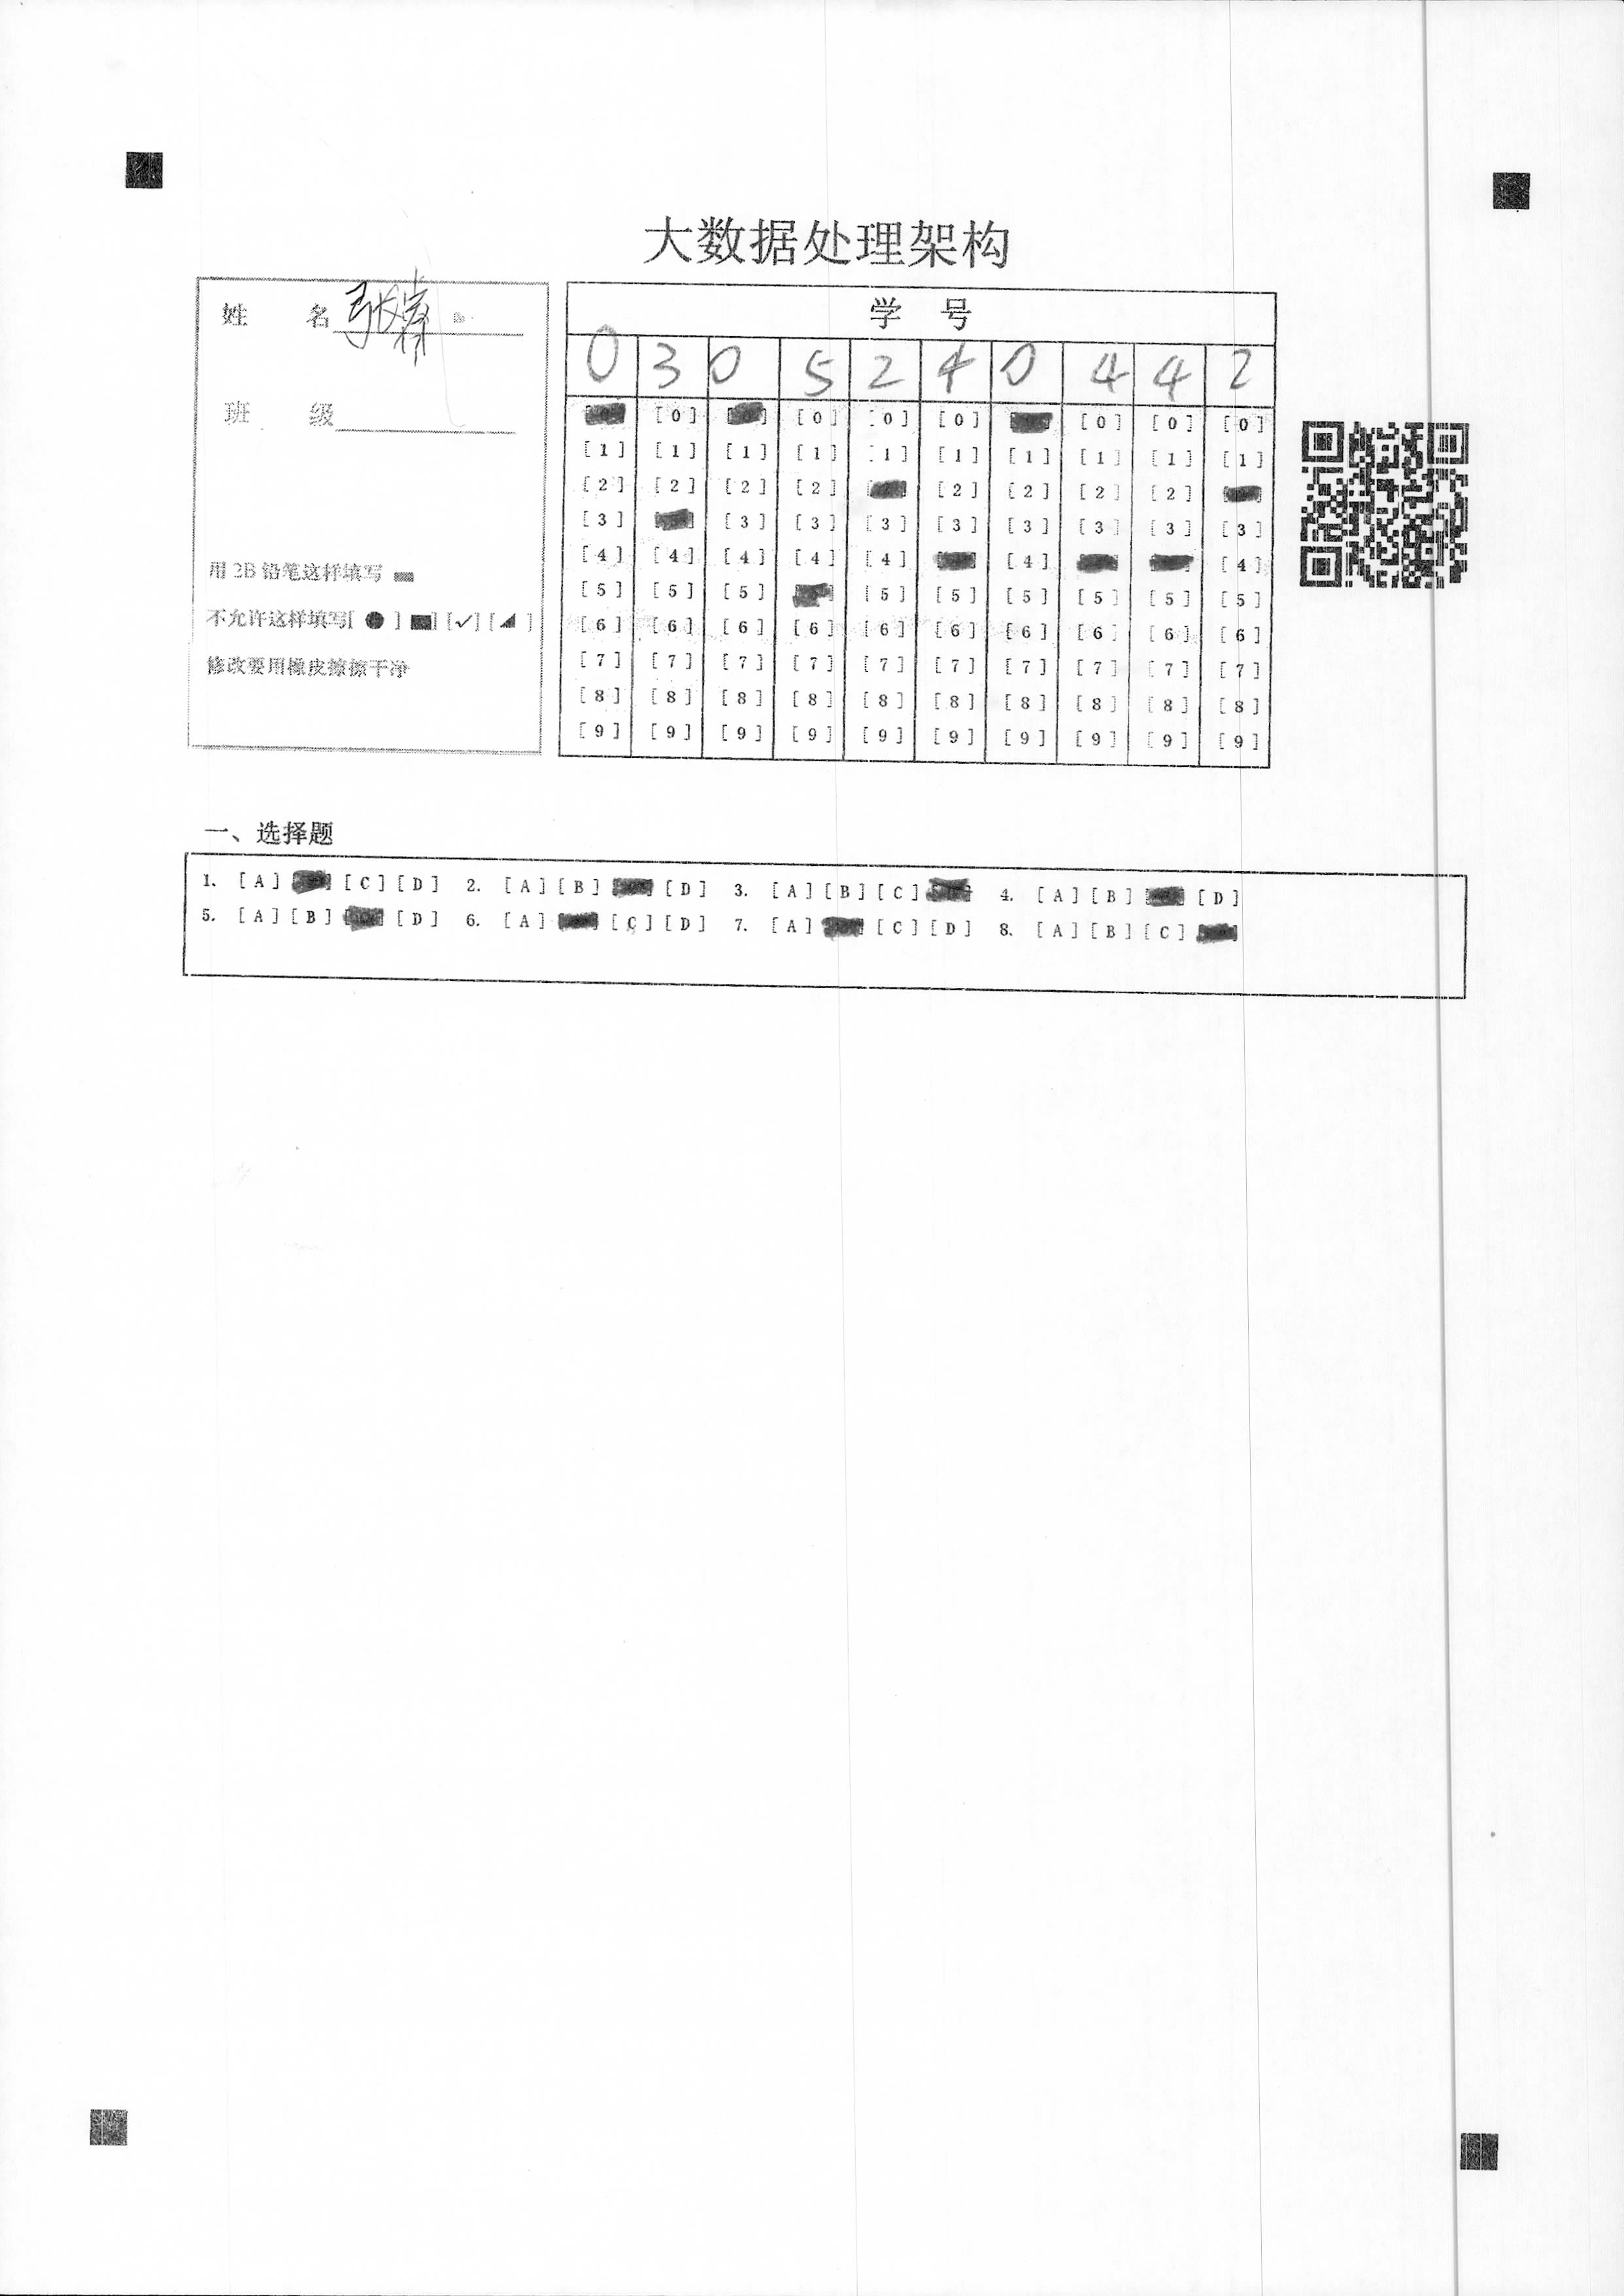 大数据处理架构
姓 名 张
班 级
用 2B 铅笔这样填写
不允许这样填写[ ● ] ■] [✓] [◢ ]
修改要用橡皮擦擦干净
学 号
0 3 0 5 2 4 0 4 4 2
[0] [0] [0] [0] [0] [0] [0]
[1] [1] [1] [1] [1] [1] [1] [1] [1] [1]
[2] [2] [2] [2] [2] [2] [2] [2]
[3] [3] [3] [3] [3] [3] [3] [3] [3]
[4] [4] [4] [4] [4] [4] [4]
[5] [5] [5] [5] [5] [5] [5] [5] [5]
[6] [6] [6] [6] [6] [6] [6] [6] [6] [6]
[7] [7] [7] [7] [7] [7] [7] [7] [7] [7]
[8] [8] [8] [8] [8] [8] [8] [8] [8] [8]
[9] [9] [9] [9] [9] [9] [9] [9] [9] [9]
一、选择题
1. [A] [C] [D] 2. [A] [B] [D] 3. [A] [B] [C] 4. [A] [B] [D]
5. [A] [B] [D] 6. [A] [C] [D] 7. [A] [C] [D] 8. [A] [B] [C]